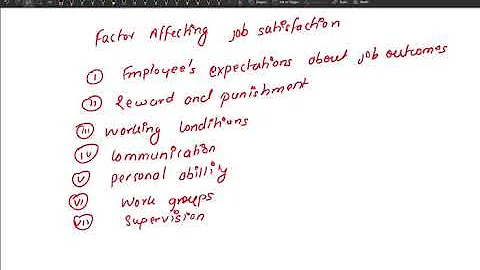 Factor Affecting job satisfaction
i Employee's expectations about job outcomes
ii Reward and punishment
iii Working Conditions
iv Communication
v personal abillity
vi Work groups
vii Supervision